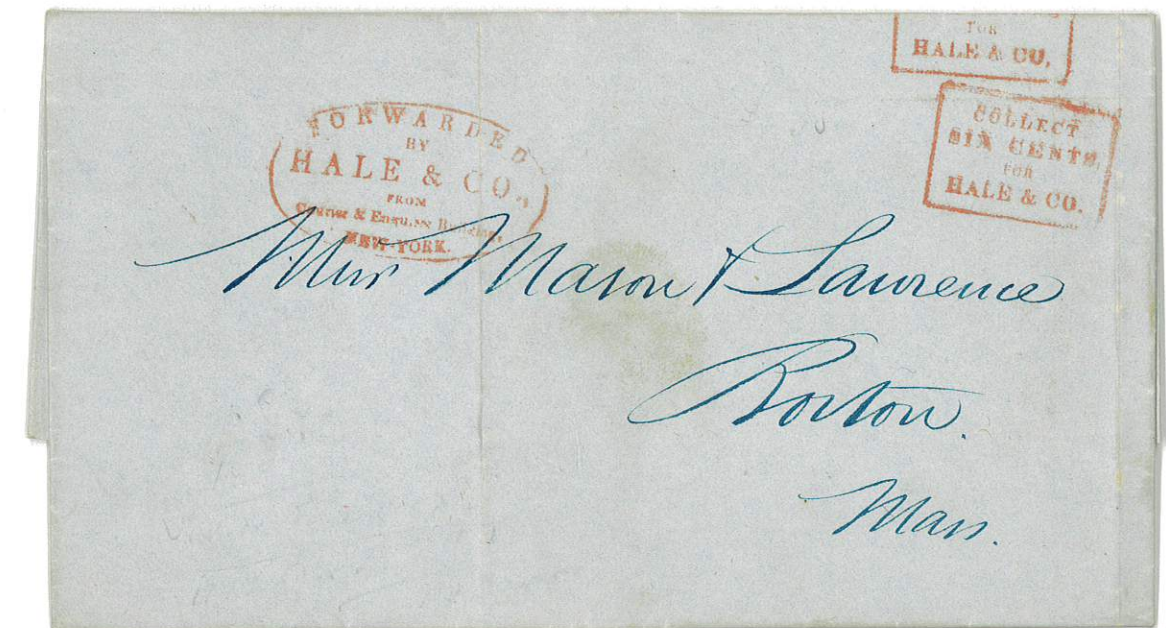 FOR
HALE & CO.
COLLECT
SIX CENTS,
FOR
HALE & CO.
FORWARDED
BY
HALE & CO.,
FROM
Courier & Enquirer Building,
NEW-YORK.
Messrs Mason & Lawrence
Boston.
Mass.